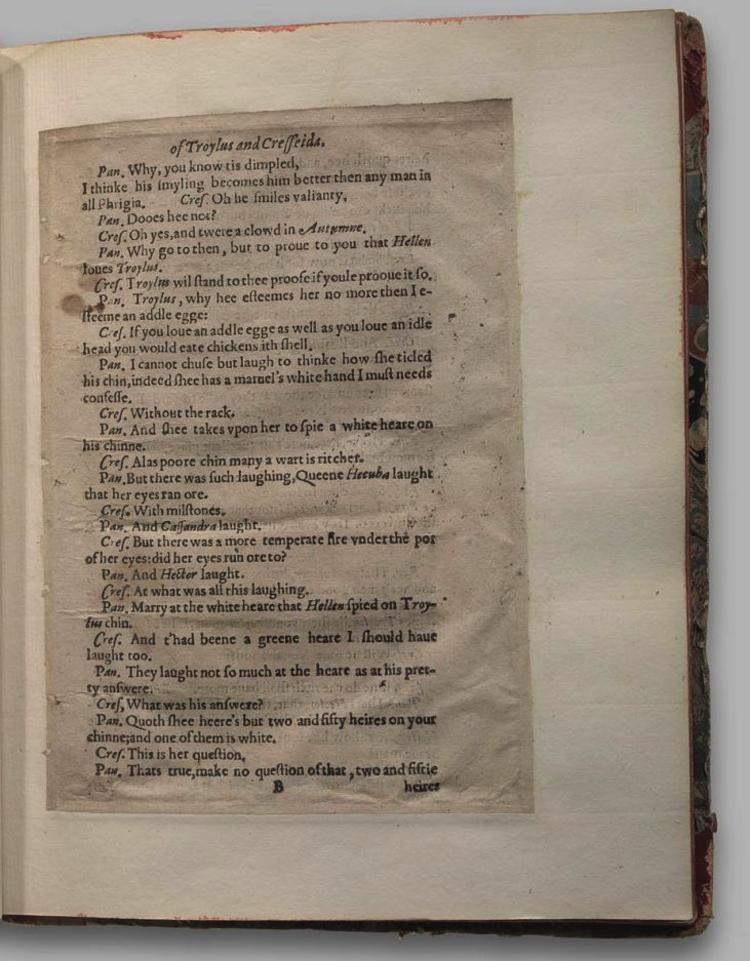 of Troylus and Cresseida.
Pan. Why, you know tis dimpled,
I thinke his smyling becomes him better then any man in
all Phrigia. Cres. Oh he smiles valianty.
Pan. Dooes hee not?
Cres. Oh yes, and twere a clowd in Autumne.
Pan. Why go to then, but to proue to you that Hellen
loues Troylus.
Cres. Troylus wil stand to thee proofe if youle prooue it so.
Pan. Troylus, why hee esteemes her no more then I e-
steeme an addle egge:
Cres. If you loue an addle egge as well as you loue an idle
head you would eate chickens ith shell.
Pan. I cannot chuse but laugh to thinke how she ticled
his chin, indeed shee has a maruel's white hand I must needs
confesse.
Cres. Without the rack.
Pan. And shee takes vpon her to spie a white heare on
his chinne.
Cres. Alas poore chin many a wart is ritcher.
Pan. But there was such laughing, Queene Hecuba laught
that her eyes ran ore.
Cres. With milstones.
Pan. And Cassandra laught.
Cres. But there was a more temperate fire vnder the pot
of her eyes: did her eyes run ore to?
Pan. And Hector laught.
Cres. At what was all this laughing.
Pan. Marry at the white heare that Hellen spied on Troy-
lus chin.
Cres. And t'had beene a greene heare I should haue
laught too.
Pan. They laught not so much at the heare as at his pret-
ty answere.
Cres, What was his answere?
Pan. Quoth shee heere's but two and fifty heires on your
chinne; and one of them is white.
Cres. This is her question,
Pan. Thats true, make no question of that, two and fiftie
B heires